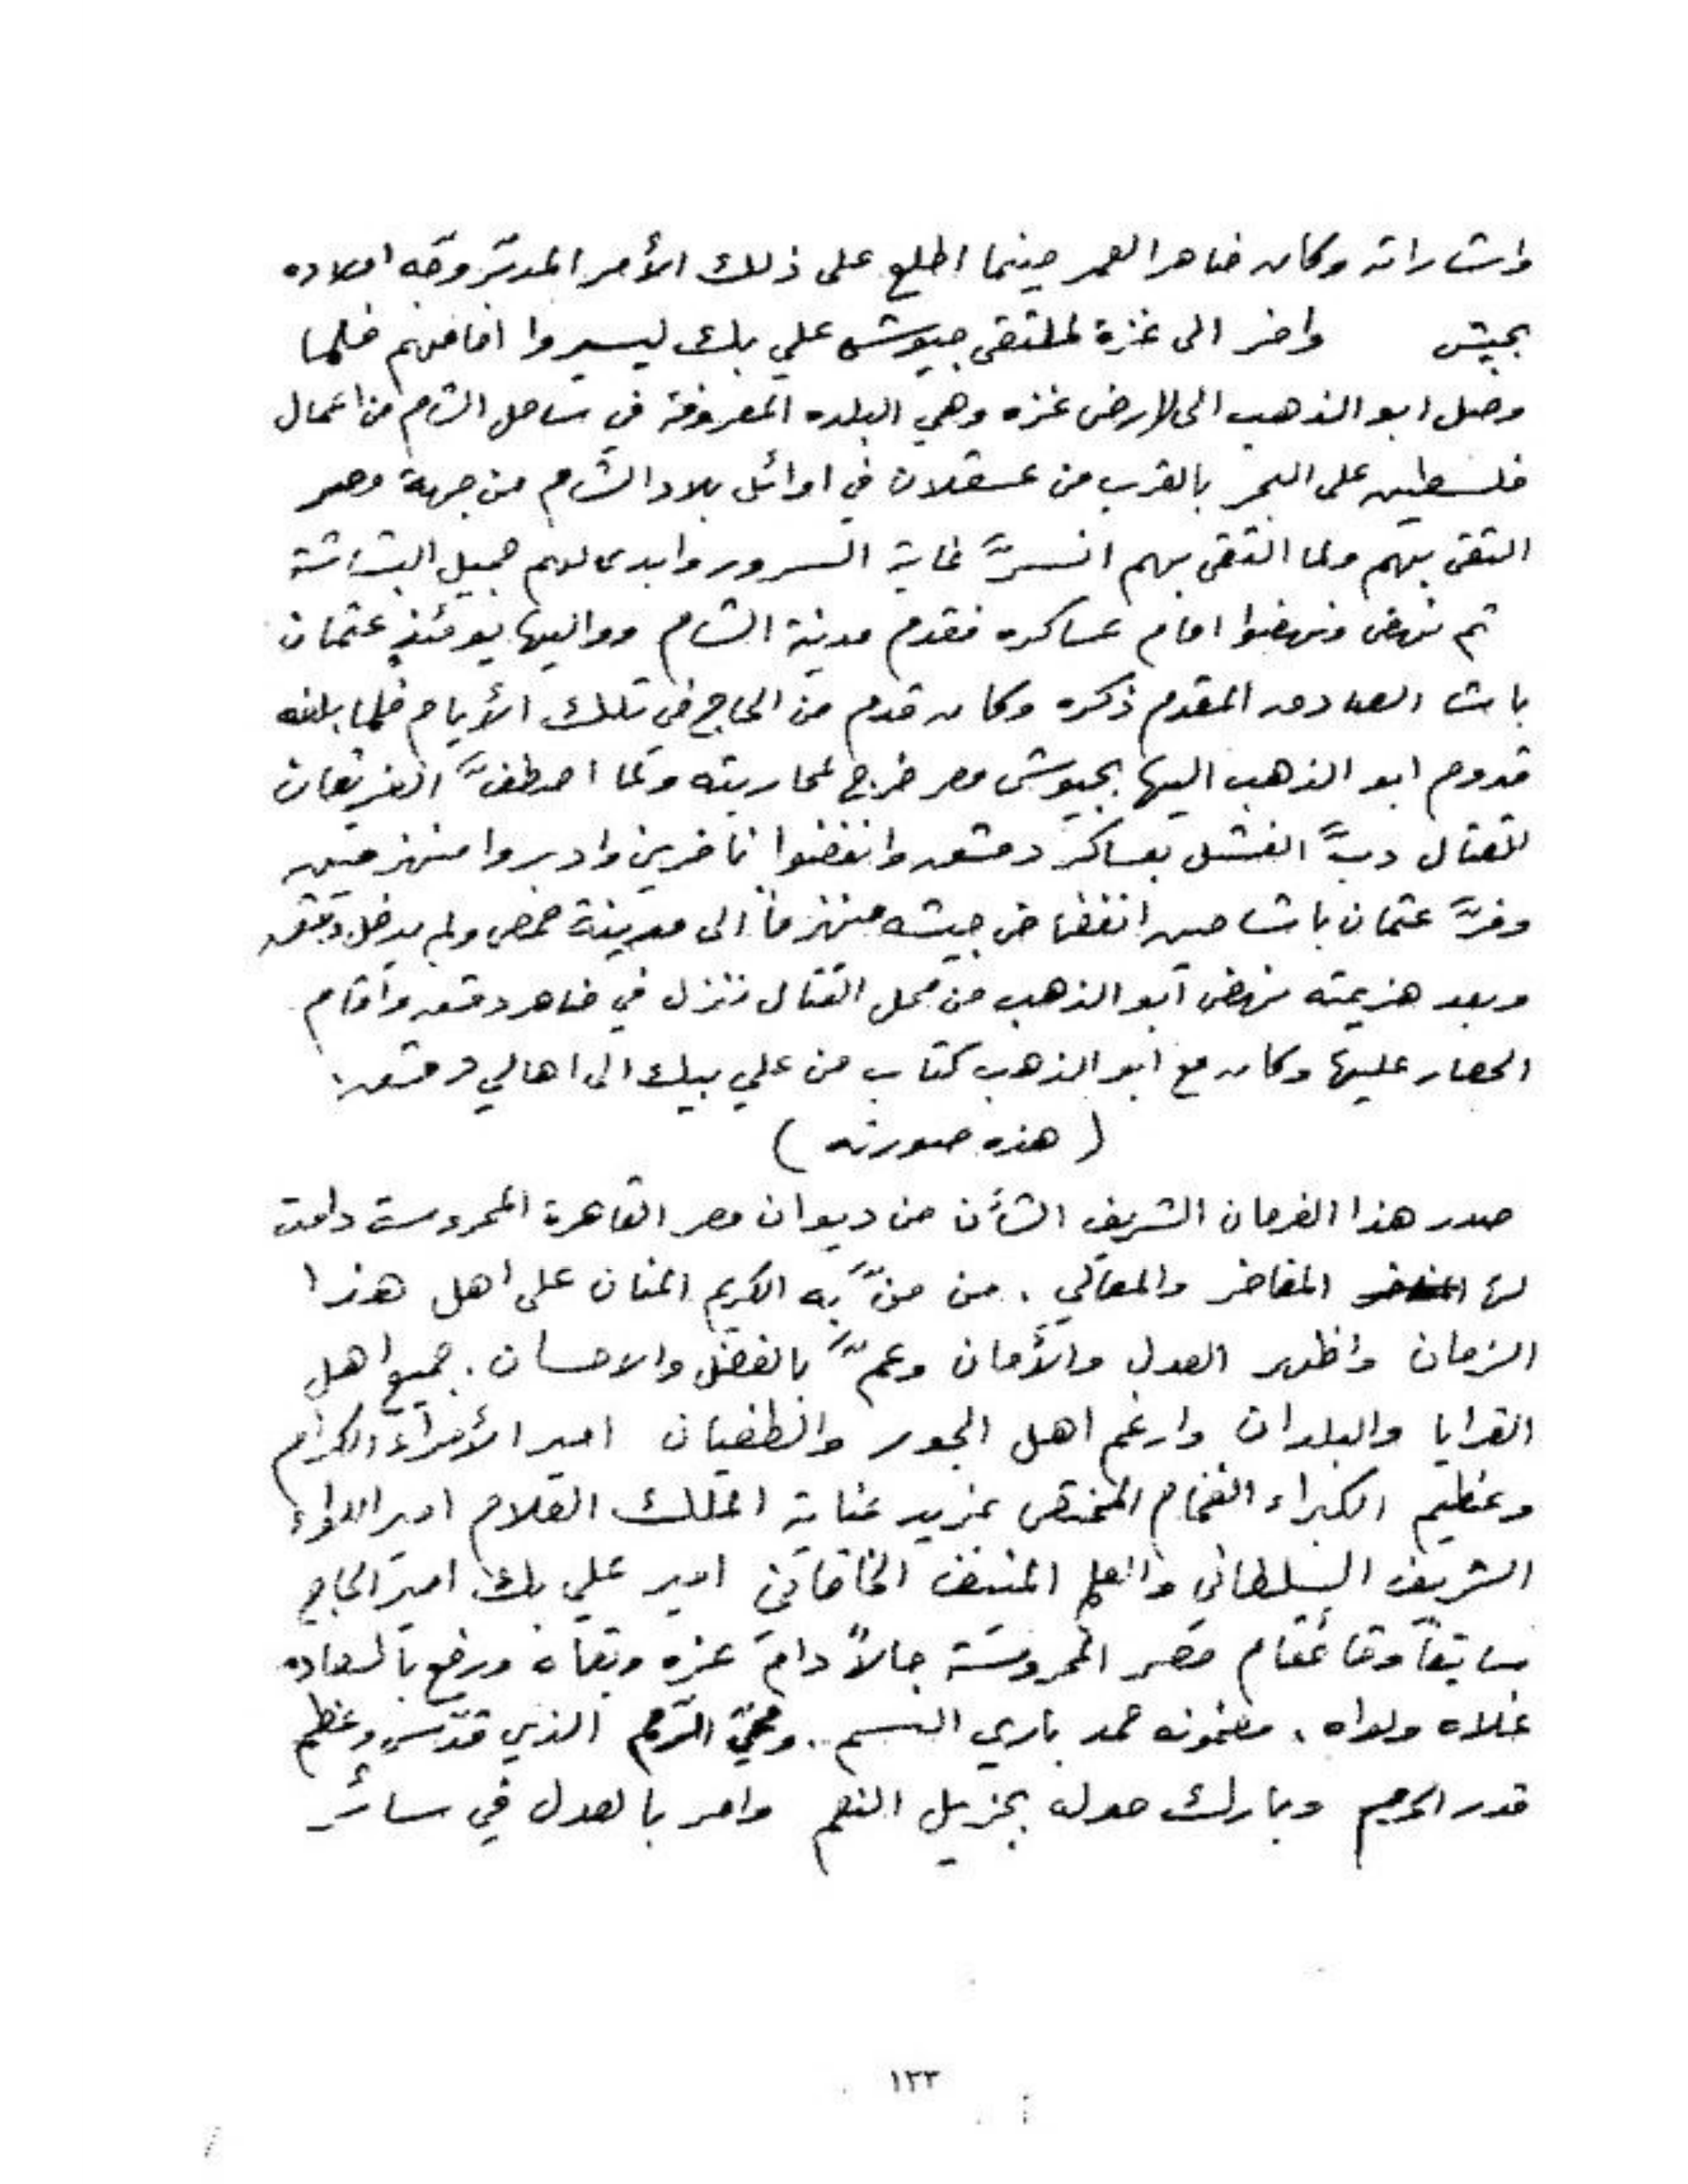 واشاراته وكان ضاهر العمر حينما اطلع على ذلك الأمر المدبّر وجّه اولاده
بجيش وافر الى غزة لملتقى جيوش علي بك ليسيروا امامهم فلما
وصل ابو الذهب الى لارض غزه وهي البلده المعروفة في ساحل الشام من اعمال
فلسطين على البحر بالقرب من عسقلان في اوائل بلاد الشام من جهة مصر
التقى بهم ولما التقى بهم انسرَّ غاية السرور وابدى لهم جميل البشاشة
ثم نهض ونهضوا امام عساكره فقدم مدينة الشام وواليها يومئذٍ عثمان
باشا الصادق المقدم ذكره وكان قدم من الحاج في تلك الأيام فلما بلغه
قدوم ابو الذهب اليها بجيوش مصر خرج لمحاربته ولما اصطفَّ الفريقان
للقتال دبَّ الفشل بعساكر دمشق وانفضوا نافرين وادبروا منهزمين
وفرَّ عثمان باشا حين انفضاض جيشه منهزماً الى مدينة حمص ولم يدخل دمشق
وبعد هزيمته نهض ابو الذهب من محل القتال ننزل في ضاهر دمشق واقام
الحصار عليها وكان مع ابو الذهب كتاب من علي بيك الى اهالي دمشق
( هذه صورته )
صدر هذا الفرمان الشريف الشأن من ديوان مصر القاهرة المحروسة دامت
لها المفاخر والمعالي . من منَّ به الكريم المنان على اهل هذا
الزمان واظهر العدل والأمان وعمَّ بالفضل والاحسان . جميع اهل
القرايا والبلدان وارغم اهل الجور والطغيان امير الأمراء الكرام
وعظيم الكبراء الفخام المختص بمزيد عناية الملك العلام امير اللواء
الشريف السلطاني والعلم المنيف الخاقاني امير علي بك امير الحاج
سابقاً وقائمقام مصر المحروسة حالاً دام عزه وبقاه ورفع بالسعاده
علاه ولواه . مضمونه حمد باري النسم . ومحيّ الرمم الذي قدّس وعظم
قدر الحرم وبارك حوله بجزيل النعم وامر بالعدل في سائر
١٣٣